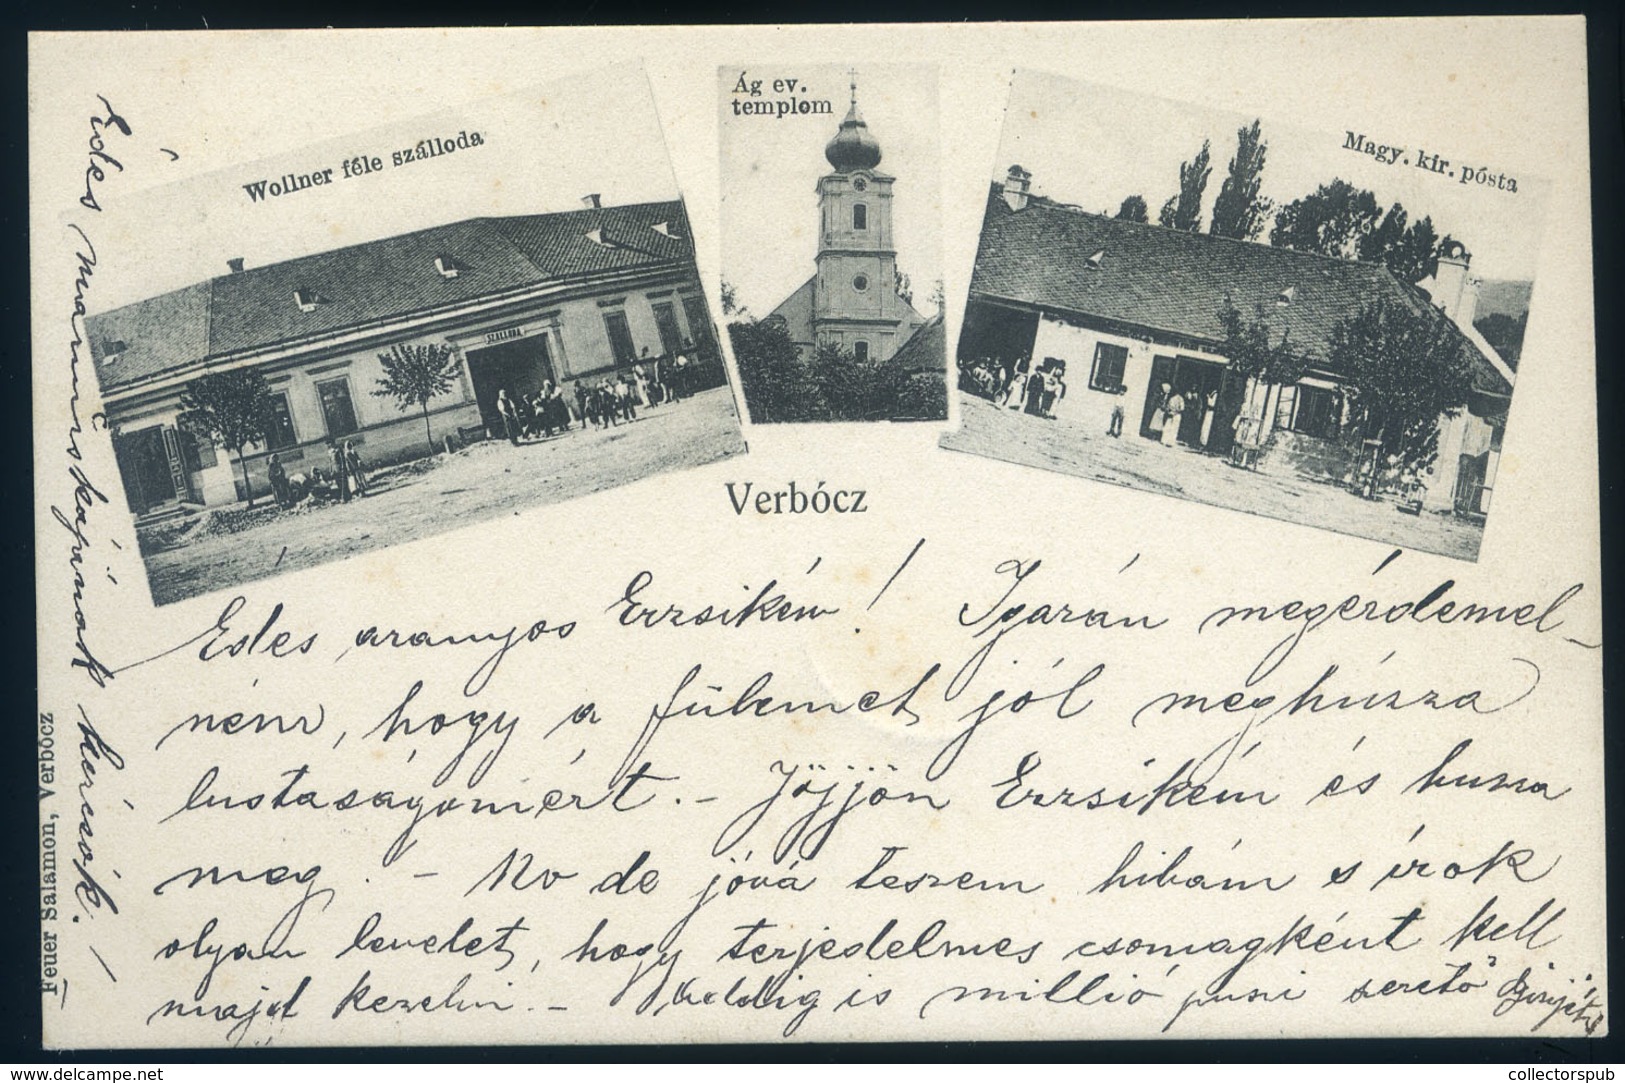 Wollner féle szálloda
SZÁLLODA
Ág ev.
templom
Magy. kir. pósta
Verbócz
Édes aranyos Erzsikém! Igazán megérdemel-
ném, hogy a fülemet jól meghúzza
lustaságomért. - Jöjjön Erzsikém és huzza
meg. - No de jóvá teszem hibám s írok
olyan levelet, hogy terjedelmes csomagként kell
majd kezelni. - Addig is millió puszi szerető
Édes mamuskájának kézcsók! -
Feuer Salamon, Verbócz
www.delcampe.net
collectorspub